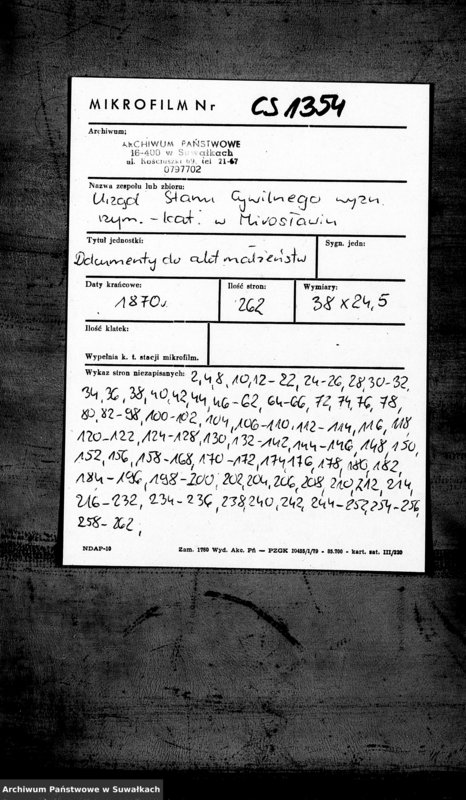 MIKROFILM Nr CS 1354
Archiwum:
ARCHIWUM PAŃSTWOWE
16-400 w Suwałkach
ul. Kościuszki 69, tel 21-67
0797702
Nazwa zespołu lub zbioru:
Urząd Stanu Cywilnego wyzn.
rzym.-kat. w Mirosławiu
Tytuł jednostki: Sygn. jedn:
Dokumenty do akt małżeństw
Daty krańcowe: Ilość stron: Wymiary:
1870r. 262 38 x 24,5
Ilość klatek:
Wypełnia k. t. stacji mikrofilm.
Wykaz stron niezapisanych: 2,4,8, 10,12-22, 24-26, 28,30-32,
34, 36, 38, 40, 42, 44, 46-62, 64-66, 72, 74, 76, 78,
80, 82-98, 100-102, 104, 106-110, 112-114, 116, 118
120-122, 124-128, 130, 132-142, 144-146, 148, 150,
152, 156, 158-168, 170-172, 174, 176, 178, 180, 182,
184-196, 198-200, 202, 204, 206, 208, 210, 212, 214,
216-232, 234-236, 238, 240, 242, 244-252, 254-256,
258-262,
NDAP-10 Zam. 1780 Wyd. Akc. Pń — PZGK 10485/I/79 - 85.700 - kart. sat. III/220
Archiwum Państwowe w Suwałkach